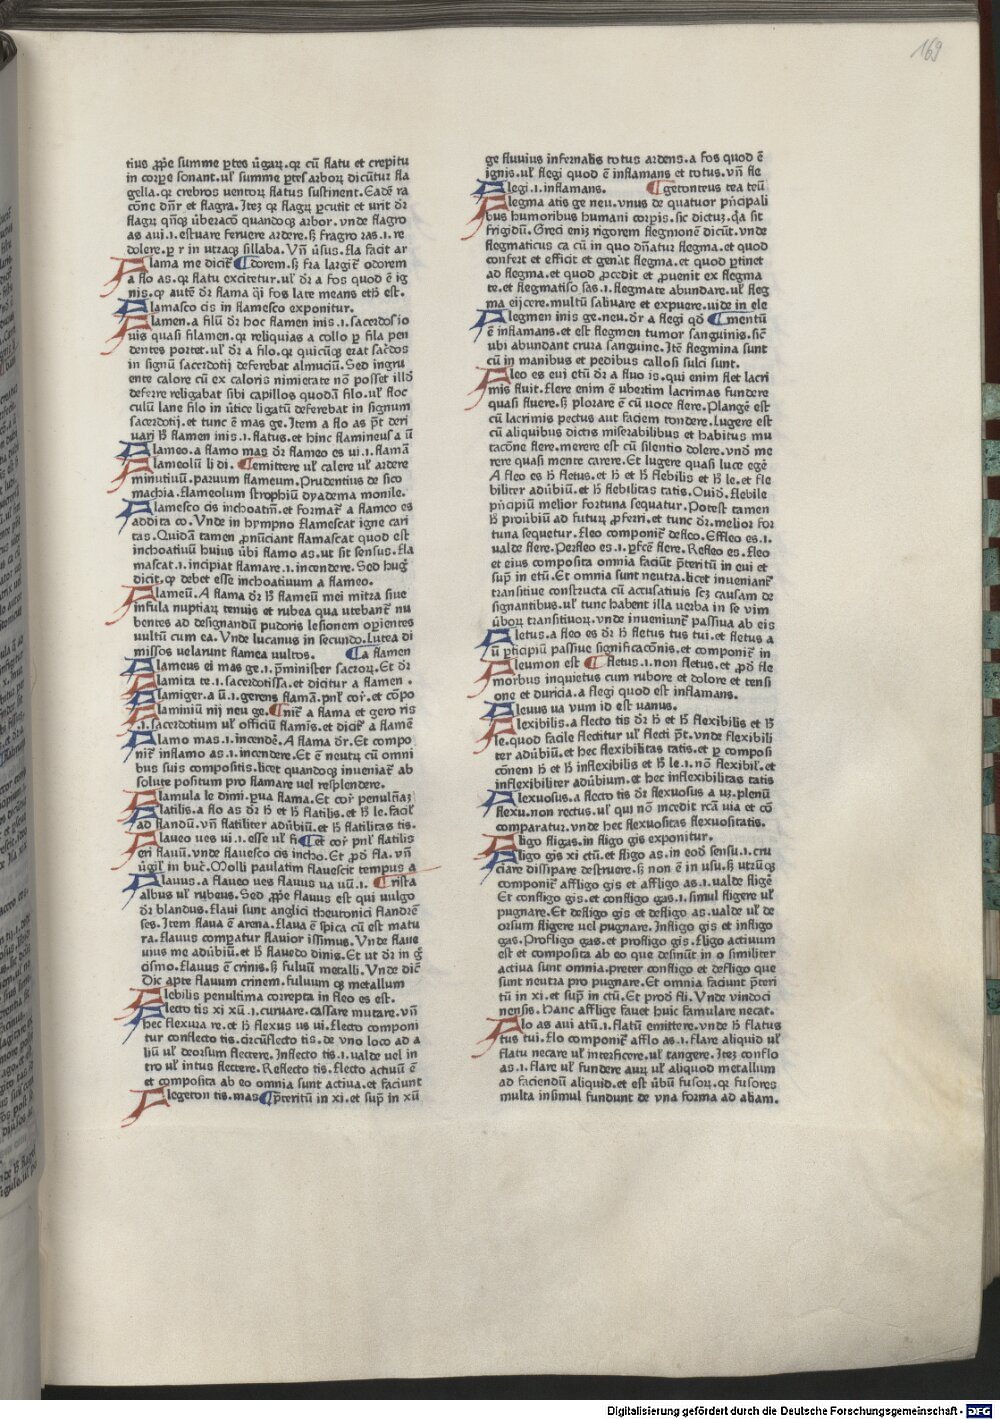 169
tius ꝓpe summe ꝑtes v̓gaꝝ. qꝛ cū flatu et crepitu
in corꝑe sonant. ul̓ summe ꝑtes arboꝝ dicūtur fla
gella. qꝛ crebros uentoꝝ flatus sustinent. Eadē ra
cōne dn̄r et flagra. Iteꝫ qꝛ flagꝝ ꝑcutit et urit dr̄
flagꝝ qn̄qꝫ v̓beracō quandoqꝫ arbor. vnde flagro
as aui .i. estuare feruere ardere. sꝫ fragro ras .i. re
dolere. ꝑ r in utraqꝫ sillaba. Vn̄ v̓sus. fla facit ar
Flama me dicit᷑ dorem. sꝫ fra largit᷑ odorem
a flo as. qꝛ flatu excitetur. ul̓ dr̄ a fos quod ē ig
nis. qꝫ autē dr̄ flama q̄i fos late means eth̓ est.
Flamasco cis in flamesco exponitur.
Flamen. a filū dr̄ hoc flamen inis .i. sacerdos io
uis quasi filamen. qꝛ reliquias a collo ꝑ fila pen
dentes portet. ul̓ dr̄ a filo. qꝛ quicūqꝫ erat sac̓dos
in signū sacerdotij deferebat almuciū. Sed ingru
ente calore cū ex caloris nimietate nō posset illd̓
deferre religabat sibi capillos quodā filo. ul̓ floc
culū lane filo in v̓tice ligatū deferebat in signum
sacerdotij. et tunc ē mas ge. Item a flo as pt̄ deri
uari h̄ flamen inis .i. flatus. et hinc flamineus a ū
Flameo. a flamo mas dr̄ flameo es ui .i. flamā
Flameolū li di. emittere ul̓ calere ul̓ ardere
minutiuū. paruum flameum. Prudentius de sico
machia. flameolum strophiū dyadema monile.
Flamesco cis inchoatiū. et format᷑ a flameo es
addita co. Vnde in hympno flamescat igne cari
tas. Quidā tamen ꝓnūciant flamascat quod est
inchoatiuū huius v̓bi flamo as. ut sit sensus. fla
mascat .i. incipiat flamare .i. incendere. Sed hug̓
dicit. qꝫ debet esse inchoatiuum a flameo.
Flameū. A flama dr̄ h̄ flameū mei mitra siue
infula nuptiaꝝ tenuis et rubea qua utebant᷑ nu
bentes ad designandū pudoris lesionem oꝑientes
uultū cum ea. Vnde lucanus in secundo. Lutea di
missos uelarunt flamea uultos. a flamen
Flameus ei mas ge .i. p̄minister sacroꝝ. Et dr̄
Flamita te .i. sacerdotissa. et dicitur a flamen.
Flamiger. a ū .i. gerens flamā. pnl̓ cor̓. et cōpo
Flaminiū nij neu ge. nit᷑ a flama et gero ris
.i. sacerdotium ul̓ officiū flamis̄. et dicit᷑ a flamē
Flamo mas .i. incendē. A flama dr̄. Et compo
nit᷑ inflamo as .i. incendere. Et ē neutꝝ cū omni
bus suis compositis. licet quandoqꝫ inueniat᷑ ab
solute positum pro flamare uel resplendere.
Flamula le dimi. ꝑua flama. Et cor̓ penultīaꝫ
Flatilis. a flo as dr̄ h̄ et h̄ flatilis. et h̄ le. facil̓
ad flandū. vn̄ flatiliter adūbiū. et h̄ flatilitas tis.
Flaueo ues ui .i. esse ul̓ fi et cor̓ pnl̓ flatilis
eri flauū. vnde flauesco cis incho. Et ꝓd̓ fla. vn̄
v̓gil̓ in buc̓. Molli paulatim flauescit tempus a
Flauus. a flaueo ues flauus ua uū .i. rista
albus ul̓ rubeus. Sed ꝓpe flauus est qui uulgo
dr̄ blandus. flaui sunt anglici theutonici flandrē
ses. Item flaua ē arena. flaua ē spica cū est matu
ra. flauus comꝑatur flauior issimus. Vnde flaue
uius me adūbiū. et h̄ flauedo dinis. Et ut dr̄ in g̓
cismo. flauus ē crinis. sꝫ fuluū metalli. Vnde dic̄
Dic apte flauum crinem. fuluum qꝫ metallum
Flebilis penultima correpta in fleo es est.
Flecto tis xi xū .i. curuare. cassare mutare. vn̄
hec flexura re. et h̄ flexus us ui. flecto componi
tur conflecto tis. circūflecto tis. de vno loco ad a
liū ul̓ deorsum flectere. Inflecto tis .i. ualde uel in
tro ul̓ intus flectere. Reflecto tis. flecto actuuū ē
et composita ab eo omnia sunt actiua. et faciunt
Flegeton tis. mas p̄teritū in xi. et sup̄ in xū
ge fluuius infernalis totus ardens. a fos quod ē
ignis. ul̓ flegi quod ē inflamans et totus. vn̄ fle
Flegi .i. inflamans. getonteus tea teū
Flegma atis ge neu. vnus de quatuor pn̄cipali
bus humoribus humani corpis. sic dictuꝫ. q̄a sit
frigidū. Greci eniꝫ rigorem flegmonē dicūt. vnde
flegmaticus ca cū in quo dn̄atur flegma. et quod
confert et efficit et gen̓at flegma. et quod ꝑtinet
ad flegma. et quod ꝓcedit et ꝓuenit ex flegma
te. et flegmatiso sas .i. flegmate abundare. ul̓ fleg
ma eijcere. multū saliuare et expuere. uide in ele
Flegmen inis ge. neu. dr̄ a flegi qd̓ mentū
ē inflamans. et est flegmen tumor sanguinis. sic̄
ubi abundant crura sanguine. Itē flegmina sunt
cū in manibus et pedibus callosi sulci sunt.
Fleo es eui etū dr̄ a fluo is. qui enim flet lacri
mis fluit. flere enim ē ubertim lacrimas fundere
quasi fluere. sꝫ plorare ē cū uoce flere. Plangē est
cū lacrimis pectus aut faciem tondere. Lugere est
cū aliquibus dictis miserabilibus et habitus mu
tacōne flere. merere est cū silentio dolere. vnd̓ me
rere quasi mente carere. Et lugere quasi luce egē
A fleo es h̄ fletus. et h̄ et h̄ flebilis et h̄ le. et fle
biliter adūbiū. et h̄ flebilitas tatis. Ouid̓. flebile
pn̄cipiū melior fortuna sequatur. Potest tamen
h̄ prōubiū ad futuꝝ ꝓferri. et tunc dr̄. melior for
tuna sequetur. fleo componit᷑ defleo. Effleo es .i.
ualde flere. Perfleo es .i. ꝑfcē flere. Refleo es. fleo
et eius composita omnia faciūt p̄teritū in eui et
sup̄ in etū. Et omnia sunt neutra. licet inueniant᷑
transitiue constructa cū accusatiuis seꝫ causam de
signantibus. ul̓ tunc habent illa uerba in se vim
v̓boꝝ transitiuoꝝ. vnde inueniunt᷑ passiua ab eis
Fletus. a fleo es dr̄ h̄ fletus tus tui. et fletus a
ū pticipiū passiue significacōnis. et componit᷑ in
Fleumon est fletus .i. non fletus. et ꝓd̓ fle
morbus inquietus cum rubore et dolore et tensi
one et duricia. a flegi quod est inflamans.
Fleuus ua vum id est uanus.
Flexibilis. a flecto tis dr̄ h̄ et h̄ flexibilis et h̄
le. quod facile flectitur ul̓ flecti pt̄. vnde flexibili
ter adūbiū. et hec flexibilitas tatis. et ꝑ composi
cōnem h̄ et h̄ inflexibilis et h̄ le .i. nō flexibil̓. et
inflexibiliter adūbium. et hec inflexibilitas tatis
Flexuosus. a flecto tis dr̄ flexuosus a uꝫ. plenū
flexu. non rectus. ul̓ qui nō incedit rcā uia et cō
comparatur. vnde hec flexuositas flexuositatis.
Fligo fligas. in fligo gis exponitur.
Fligo gis xi ctū. et fligo as. in eod̓ sensu .i. cru
ciare dissipare destruere. sꝫ non ē in usu. sꝫ utrūqꝫ
componit᷑ affligo gis et affligo as .i. ualde fligē
Et confligo gis. et confligo gas .i. simul fligere ul̓
pugnare. Et defligo gis et defligo as. ualde ul̓ de
orsum fligere uel pugnare. Infligo gis et infligo
gas. Profligo gas. et profligo gis. fligo actiuum
est et composita ab eo que desinūt in o similiter
actiua sunt omnia. preter confligo et defligo que
sunt neutra pro pugnare. Et omnia faciunt p̄teri
tū in xi. et sup̄ in ctū. Et prod̓ fli. Vnde vindoci
nensis. Hanc afflige fauet huic famulare necat.
Flo as aui atū .i. flatū emittere. vnde h̄ flatus
tus tui. flo componit᷑ afflo as .i. flare aliquid ul̓
flatu necare ul̓ interficere. ul̓ tangere. Iteꝫ conflo
as .i. flare ul̓ fundere auꝝ ul̓ aliquod metallum
ad faciendū aliquid. et est v̓bū fusoꝝ. qꝛ fusores
multa insimul fundunt de vna forma ad aliam.
Digitalisierung gefördert durch die Deutsche Forschungsgemeinschaft - DFG